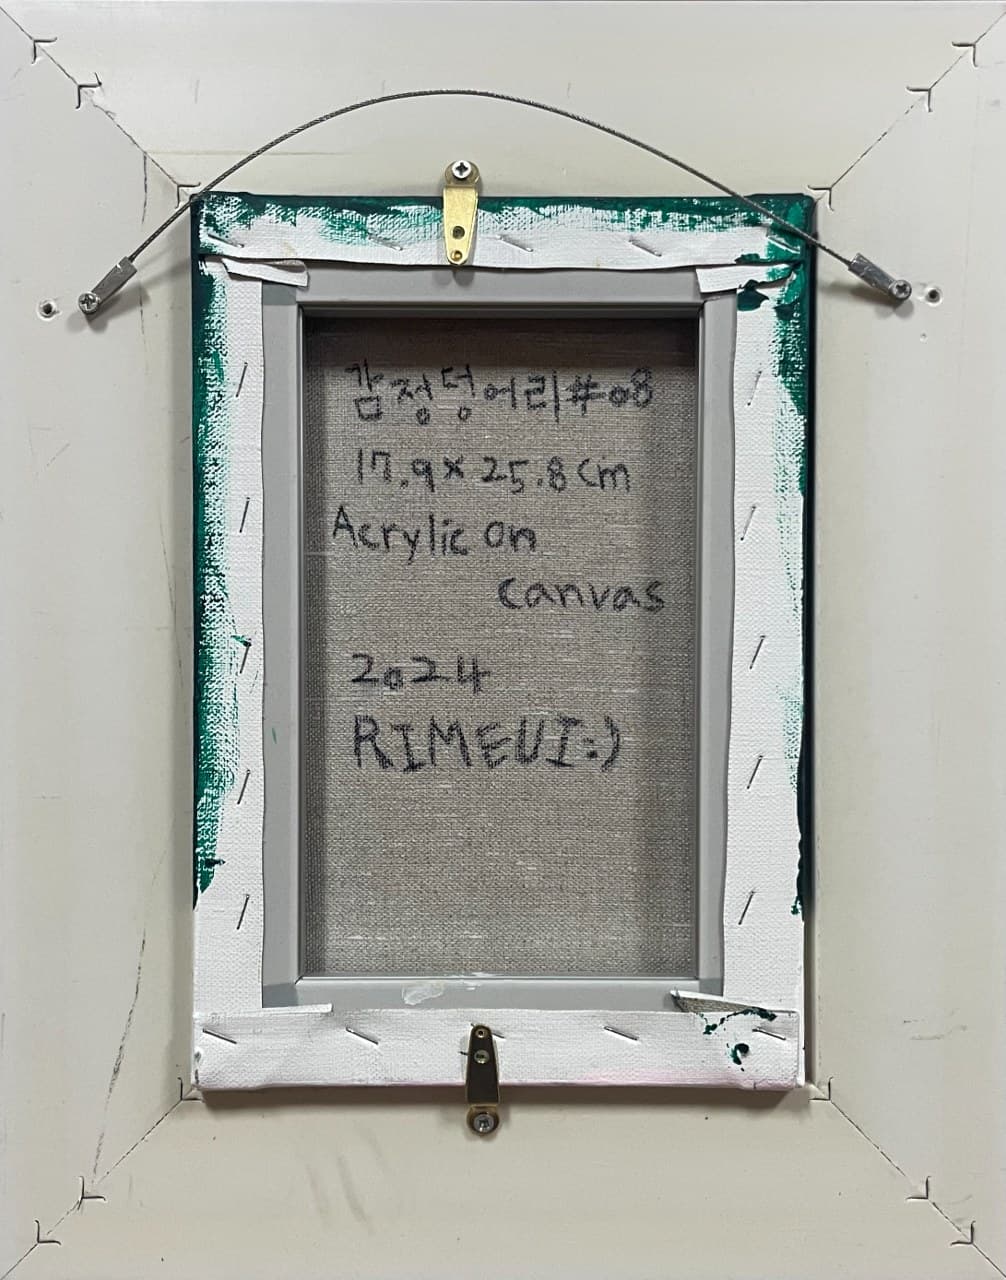 감정덩어리#08
17.9 x 25.8 cm
Acrylic on
canvas
2024
RIMEUI:)